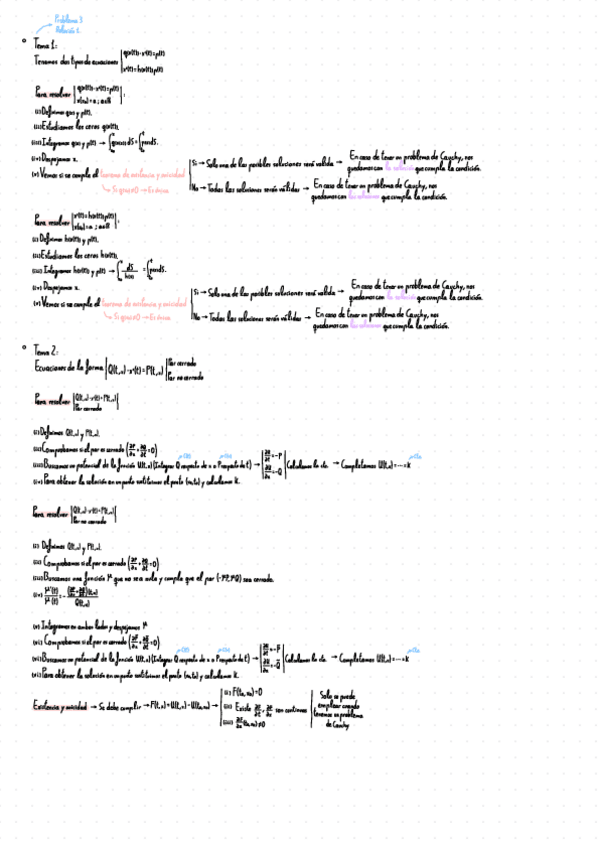 Problema 3
Relación 1.
Tema 1:
Tenemos dos tipos de ecuaciones | g(x(t))·x'(t)=p(t)
x'(t)=h(x(t))p(t)
Para resolver | g(x(t))·x'(t)=p(t)
x(t₀)=a ; a∈ℝ
(i) Definimos g(x) y p(t).
(ii) Estudiamos los ceros g(x(t)).
(iii) Integramos g(x) y p(t) →
(iv) Despejamos x.
(v) Vemos si se cumple el teorema de existencia y unicidad
Si g(x)≠0 → Es única
Si → Solo una de las posibles soluciones será válida → En caso de tener un problema de Cauchy, nos
quedamos con la solución que cumpla la condición.
No → Todas las soluciones serán válidas → En caso de tener un problema de Cauchy, nos
quedamos con las soluciones que cumpla la condición.
Para resolver | x'(t)=h(x(t))p(t)
x(t₀)=a ; a∈ℝ
(i) Definimos h(x(t)) y p(t).
(ii) Estudiamos los ceros h(x(t)).
(iii) Integramos h(x(t)) y p(t) →
(iv) Despejamos x.
(v) Vemos si se cumple el teorema de existencia y unicidad
Si g(x)≠0 → Es única
Si → Solo una de las posibles soluciones será válida → En caso de tener un problema de Cauchy, nos
quedamos con la solución que cumpla la condición.
No → Todas las soluciones serán válidas → En caso de tener un problema de Cauchy, nos
quedamos con las soluciones que cumpla la condición.
Tema 2:
Ecuaciones de la forma | Q(t,x)·x'(t)=P(t,x) | Par cerrado
Par no cerrado
Para resolver | Q(t,x)·x'(t)=P(t,x)
Par cerrado
(i) Definimos Q(t,x) y P(t,x).
(ii) Comprobamos si el par es cerrado (∂P/∂x + ∂Q/∂t = 0)
(iii) Buscamos un potencial de la función U(t,x) (Integrar Q respecto de x o P respecto de t) → | ∂U/∂t = -P
∂U/∂x = Q | Calculamos la cte. → Completamos U(t,x)=...=k
(iv) Para obtener la solución en un punto sustituimos el punto y calculamos k.
Para resolver | Q(t,x)·x'(t)=P(t,x)
Par no cerrado
(i) Definimos Q(t,x) y P(t,x).
(ii) Comprobamos si el par es cerrado (∂P/∂x + ∂Q/∂t = 0)
(iii) Buscamos una función μ que no sea nula y cumpla que el par (-μP, μQ) sea cerrado.
(iv) μ'(t)/μ(t) =
(v) Integramos en ambos lados y despejamos μ
(vi) Comprobamos si el par es cerrado (∂P/∂x + ∂Q/∂t = 0)
(vii) Buscamos un potencial de la función U(t,x) (Integrar Q respecto de x o P respecto de t) → | Calculamos la cte. → Completamos U(t,x)=...=k
(viii) Para obtener la solución en un punto sustituimos el punto y calculamos k.
Existencia y unicidad → Se debe cumplir → F(t,x)=U(t,x)-U(t₀,x₀) → | (i) F(t₀,x₀)=0
(ii) Existe ∂F/∂t, ∂F/∂x son continuas
(iii) ∂F/∂x (t₀,x₀)≠0
Solo se puede
emplear cuando
tenemos un problema
de Cauchy